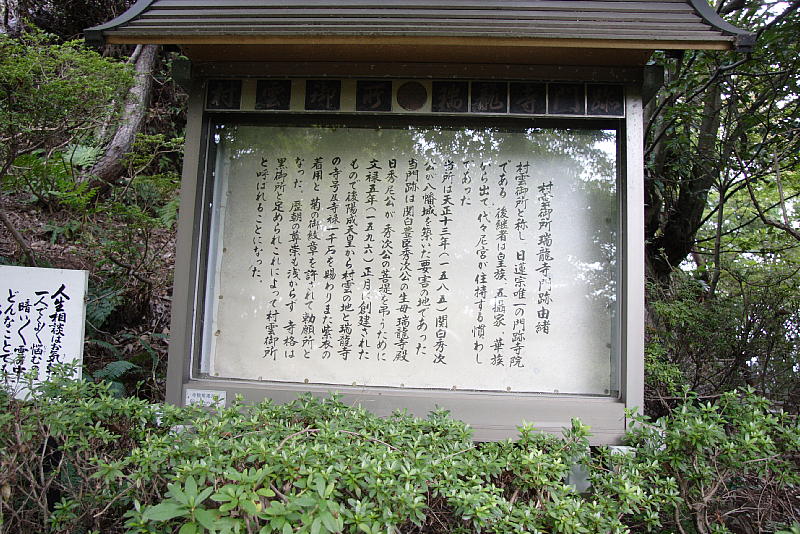 村雲御所瑞龍寺門跡
村雲御所瑞龍寺門跡由緒
村雲御所と称し 日蓮宗唯一の門跡寺院
である 後継者は皇族 五摂家 華族
から出て 代々尼宮が住持する慣わし
であった
当所は天正十三年(一五八五)関白秀次
公が八幡城を築いた要害の地であった
当門跡は関白豊臣秀次公の生母瑞龍寺殿
日秀尼公が 秀次公の菩提を弔うために
文禄五年(一五九六)正月に創建された
もので後陽成天皇から村雲の地と瑞龍寺
の寺号及寺禄一千石を賜わりまた紫衣の
着用と 菊の御紋章を許されて勅願所と
なった 歴朝の尊崇も浅からず 寺格は
黒御所と定められこれによって村雲御所
と呼ばれることになった。
人生相談は
一人でも悩む
暗い
どんなことでも